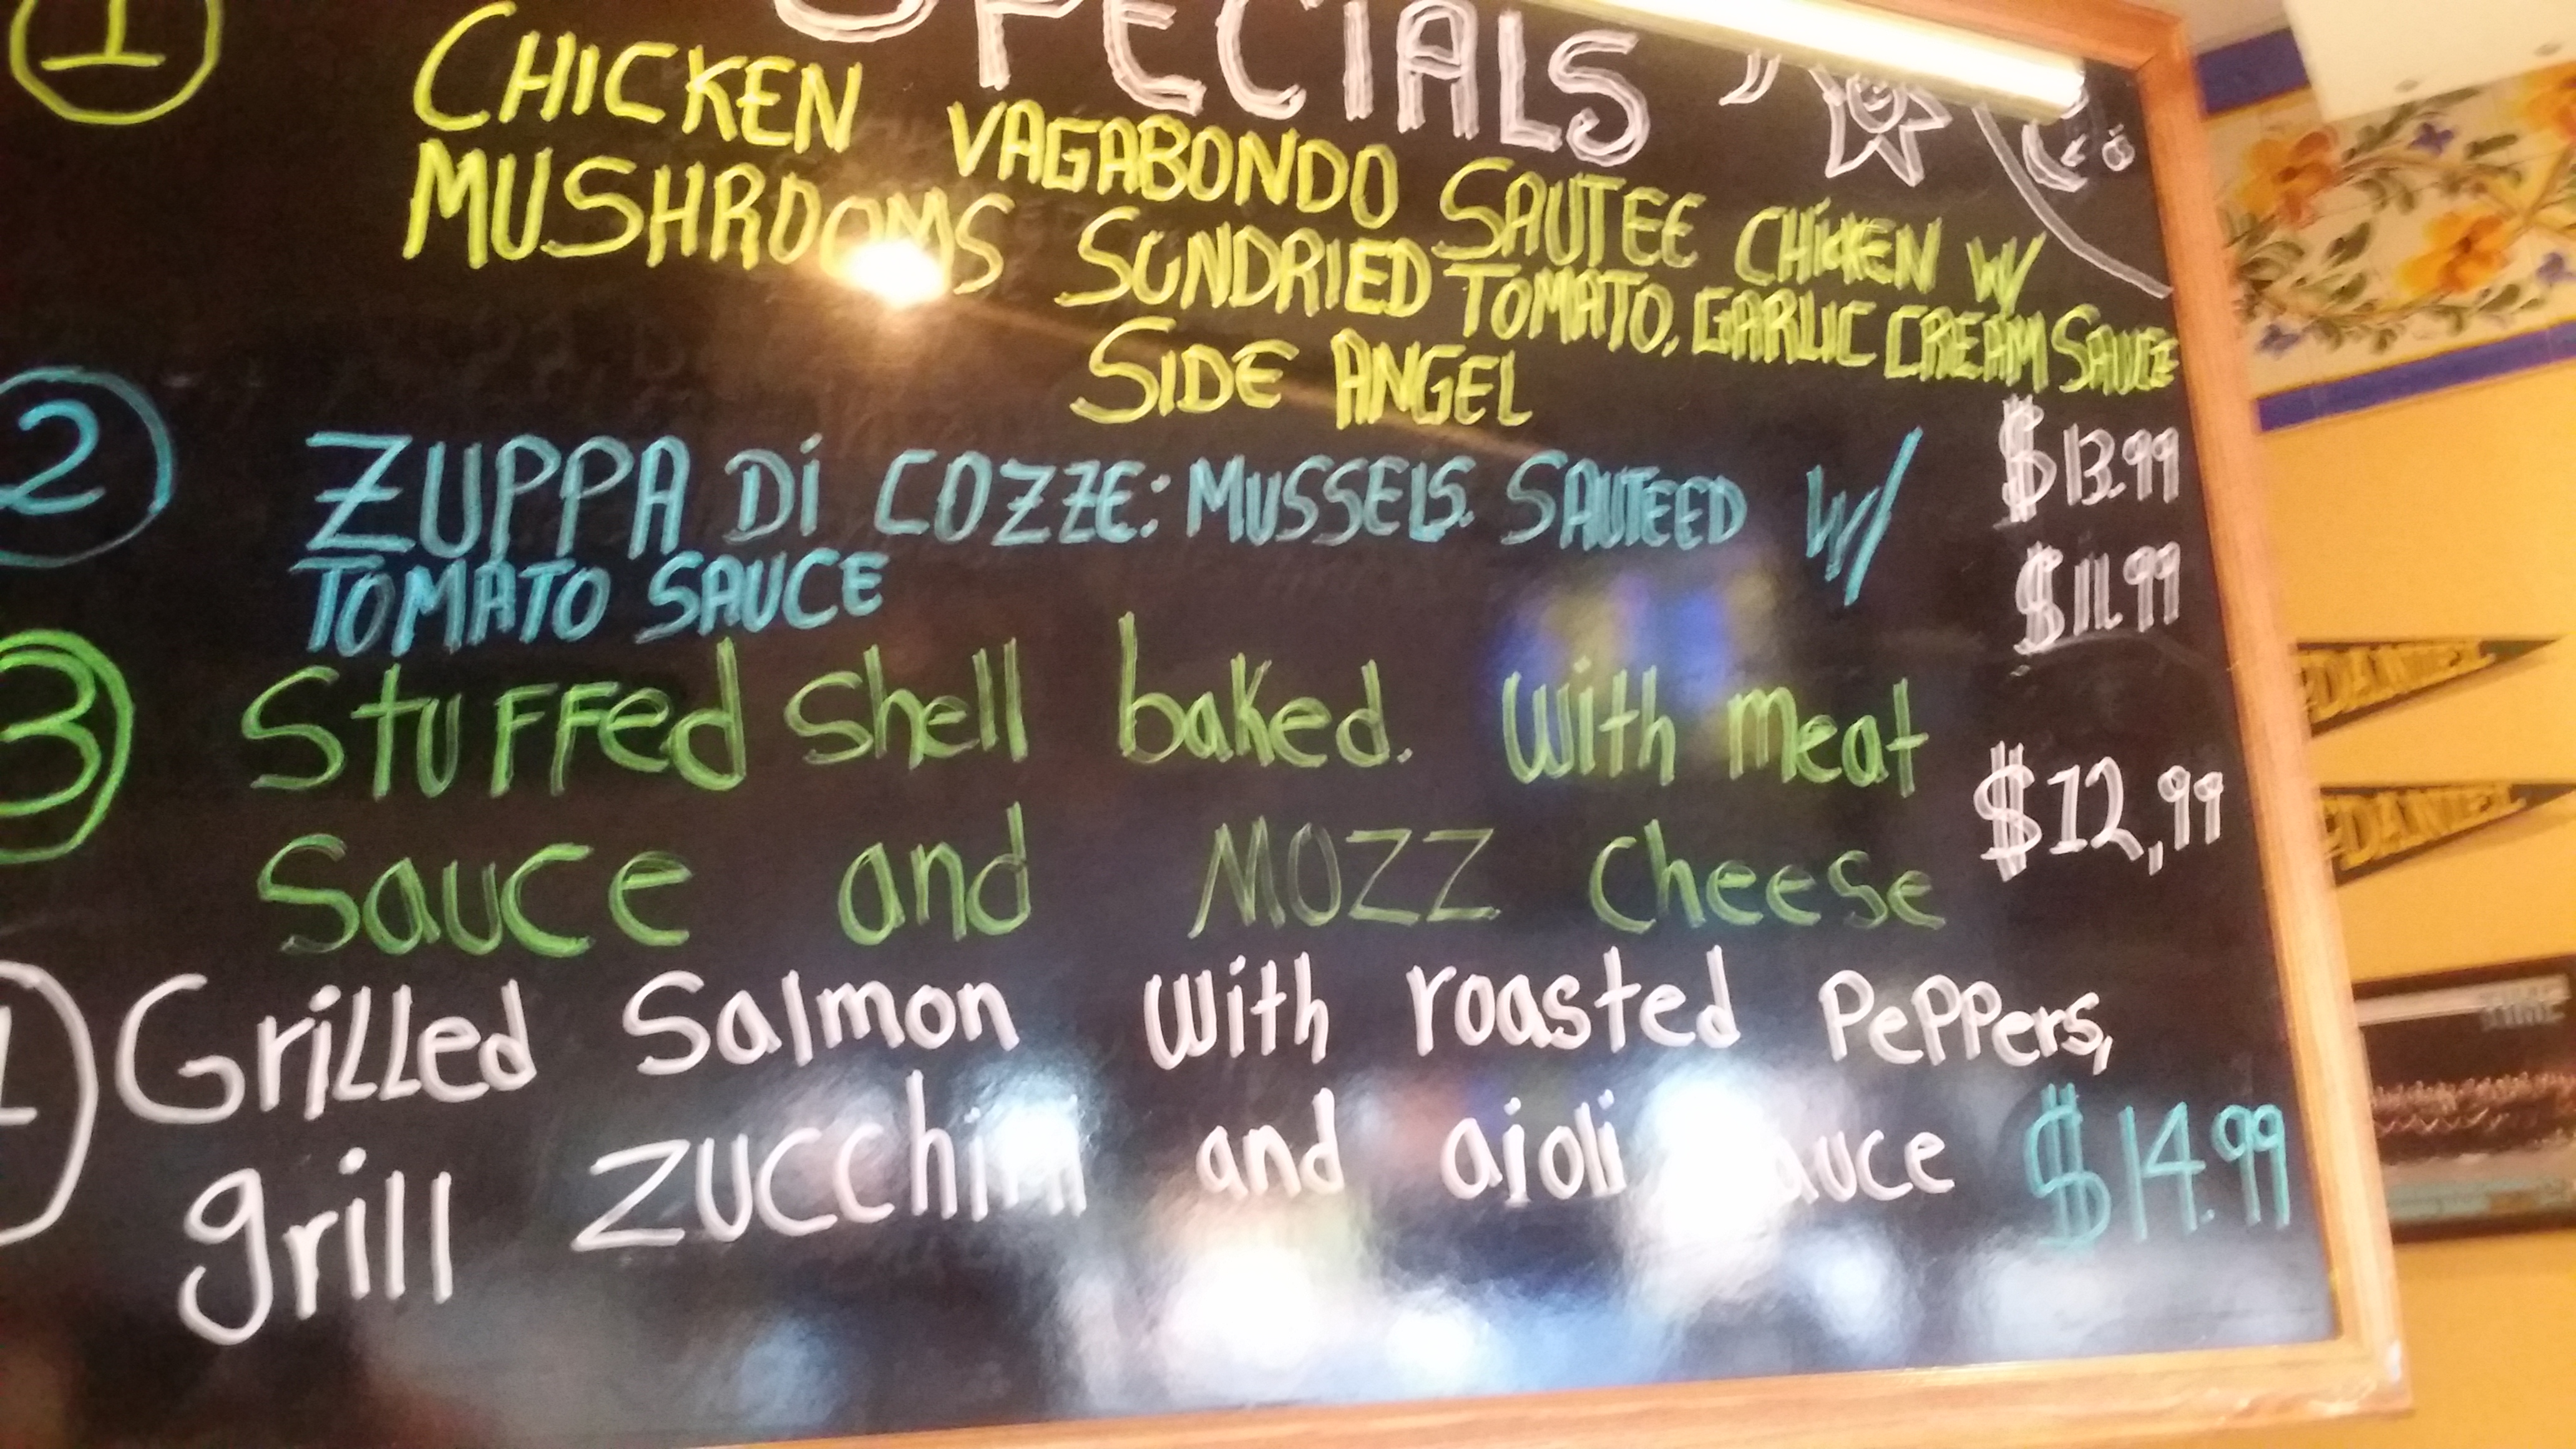 SPECIALS
1 CHICKEN VAGABONDO SAUTEE CHICKEN W/
MUSHROOMS SUNDRIED TOMATO, GARLIC CREAM SAUCE
SIDE ANGEL
$13.99
2 ZUPPA Di COZZE: MUSSELS SAUTEED W/
TOMATO SAUCE
$11.99
3 Stuffed Shell baked. With meat
Sauce and MOZZ Cheese
$12,99
Grilled Salmon With roasted Peppers,
grill Zucchini and aioli sauce $14.99
McDANIEL
McDANIEL